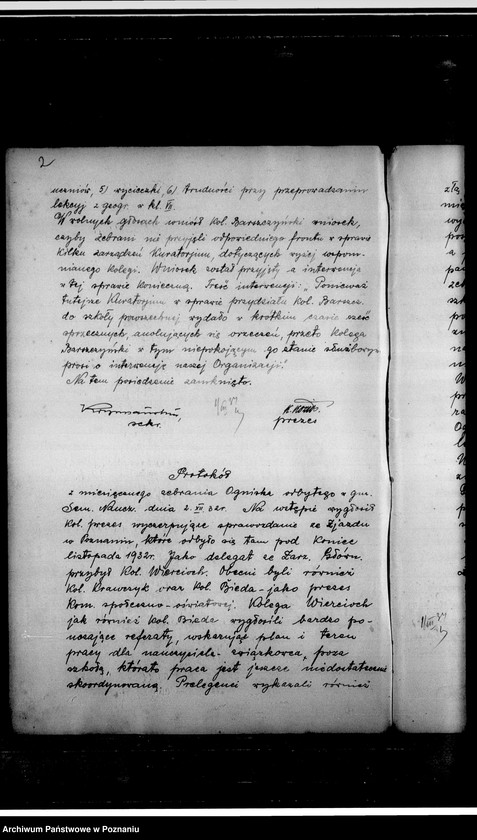 2
uczniów, 5) wycieczki, 6) trudności przy przeprowadzaniu
lekcyj z geogr. w kl. VI.
W wolnych głosach wniósł kol. Barszczyński wniosek,
czyby zebrani nie przyjęli odpowiedniego frontu w sprawie
kilku zarządzeń Kuratorjum, dotyczących wyżej wspom-
nianego kolegi. Wniosek został przyjęty a interwencja
w tej sprawie konieczną. Treść interwencji: Ponieważ
tutejsze Kuratorjum w sprawie przydziału kol. Barszcz.
do szkoły powszechnej wydało w krótkim czasie sześć
sprzecznych, anulujących się orzeczeń, przeto Kolega
Barszczyński w tym niepokojącym go stanie służbowym
prosi o interwencję naszej Organizacji.
Na tem posiedzenie zamknięto.
sekr.
prezes
Protokół
z miesięcznego zebrania Ogniska odbytego w gm.
Sem. Naucz. dnia 2. XII. 32r. Na wstępie wygłosił
kol. prezes wyczerpujące sprawozdanie ze Zjazdu
w Poznaniu, które odbyło się tam pod koniec
listopada 1932r. Jako delegat ze Zarz. Głów.
przybył kol. Wiercioch. Obecni byli również
kol. Krawczyk oraz kol. Bieda - jako prezes
Kom. społeczno-oświatowej. Kolega Wiercioch
jak również kol. Bieda wygłosili bardzo po-
uczające referaty, wskazując plan i teren
pracy dla nauczyciela-związkowca, poza
szkołą, którato praca jest jeszcze niedostatecznie
skoordynowaną. Prelegenci wykazali również
Archiwum Państwowe w Poznaniu